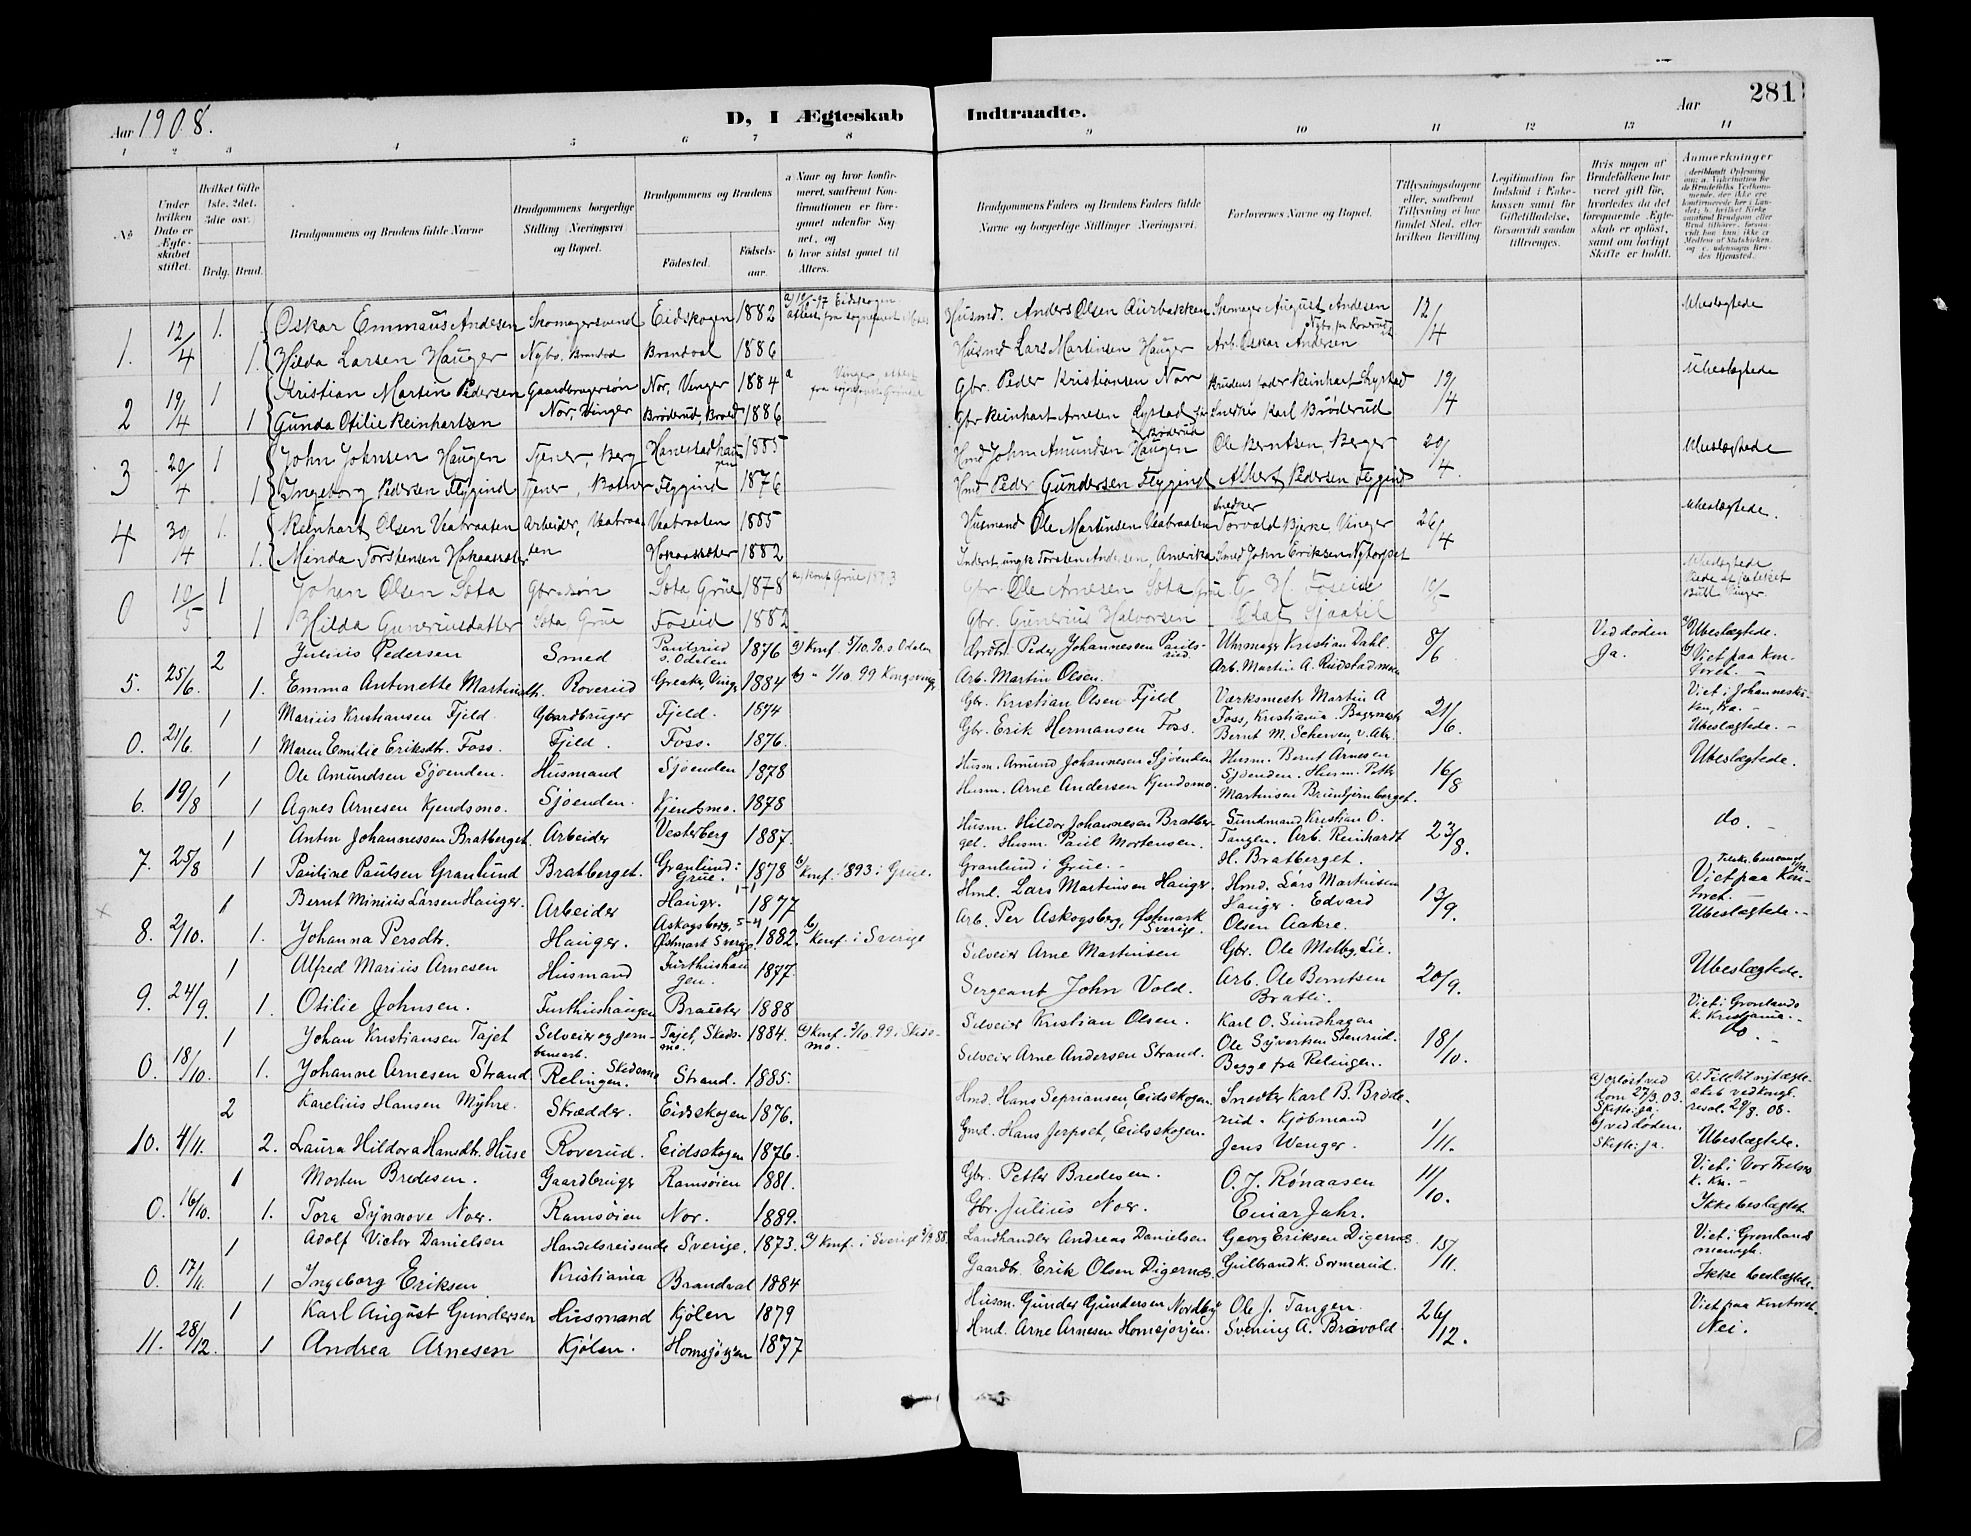 Aar 1908.
D, I Ægteskab Indtraadte.
Aar
281
1 2 3 4 5 6 7 8 9 10 11 12 13 14
No
Under hvilken Dato er Ægteskabet stiftet.
Hvilket Gifte 1ste, 2det, 3die osv.
Brdg. Brud.
Brudgommens og Brudens fulde Navne
Brudgommens borgerlige Stilling (Næringsvei) og Bopæl.
Brudgommens og Brudens
Fødested.
Fødselsaar.
a) Naar og hvor konfirmeret, saafremt Konfirmationen er foregaaet udenfor Sognet, og
b) hvor sidst gaaet til Alters.
Brudgommens Faders og Brudens Faders fulde Navne og borgerlige Stillinger (Næringsvei).
Forlovernes Navne og Bopæl.
Tillysningsdagene eller, saafremt Tillysning ei har fundet Sted, efter hvilken Bevilling
Legitimation for Indskud i Enkekassen samt for Giftetilladelse, forsaavidt saadan tiltrænges.
Hvis nogen af Brudefolkene har været gift før, hvorledes da det foregaaende Ægteskab er opløst, samt om lovligt Skifte er holdt.
Anmerkninger
1. 12/4 1. Oskar Emmaus Andesen Skomagersvend Eidskogen 1882 Husmd. Anders Olsen Aurbakken Skomager August Andesen 12/4 Ubeslægtede
1. Hilda Larsen Hauger Nybo, Brandval Brandval 1886 Husmd Lars Martinsen Hauger Arb. Oskar Andersen
2 19/4 1 Kristian Marten Pedersen Gaardbrugersøn Nor, Vinger 1884 a Gbr. Peder Kristiansen Nor Brudens fader Reinhart Lystad 19/4 Ubeslægtede
1 Gunda Otilie Reinhartsen Nor, Vinger Brøderud, Brand 1886 Gbr Reinhart Arnesen Lystad Snedker Karl Brøderud
3 20/4 1 John Johnsen Haugen Tjener, Berg Hanestadhaugen 1885 Hmd John Amundsen Haugen Ole Berntsen, Berger 20/4. Ubeslægtede
1 Ingeborg Pedersen Flygind Tjener, Botner Flygind 1876 Hmd Peder Gundersen Flygind Albert Pedersen Flygind
4 30/4 1. Reinhart Olsen Vaatraaten Arbeider, Vaatraaten Vaatraaten 1885 Husmand Ole Martinsen Vaatraaten Snedker Torvald Bjerke Vinger 26/4 Ubeslægtede.
1. Minda Torstensen Hokaasæter Hokaasæter 1882 Torsten Andersen, Amerika Smed John Eriksen Nytorpet
0 10/5 1 Johan Olsen Sota Gbr. søn Sota Grue 1878 a) konf Grue Gbr. Ole Arnesen Sota Grue G. H. Foseid 10/5 Ubeslægtede
1 Hilda Guneriusdatter Sota Grue Foseid 1882 Gbr. Gunerius Halvorsen Olaf
5. 25/6. 2 Julius Pedersen Smed Paulsrud s. Odalen 1876 a) Konf. 5/10. 90. s. Odalen Peder Johannessen Paulsrud. Uhrmager Kristian Dahl. 8/6 Ved døden Ja. Ubeslægtede. Viet paa Kontoret.
1. Emma Antonette Martinsdtr. Roverud Greaker, Vinger 1884 b) " 1/10. 99 Kongsvinger Arb. Martin Olsen. Arb. Martin A. Rudstadmoen
0. 21/6. 1 Marius Kristiansen Fjeld. Gaardbruger Fjeld. 1874 Gbr. Kristian Olsen Fjeld Værksmester Martin A Foss, Kristiania. Bagermester 21/6. Viet i Johanneskirken, Kra. -
1 Maren Emilie Eriksdtr. Foss. Fjeld. Foss. 1876. Gbr. Erik Hermansen Foss. Bernt M. Scherven, v. Aker Ubeslægtede. -
6. 19/8 1 Ole Amundsen Sjøenden. Husmand Sjøenden 1878 Husm. Amund Johannesen Sjøenden Husm. Bernt Arnesen Sjøenden. Husm. Petter 16/8 Ubeslægtede.
1 Agnes Arnesen Kjendsmo. Sjøenden. Kjendsmo. 1878 Husm. Arne Andersen Kjendsmo. Martinsen Bruntjernberget.
7. 25/8 1 Anton Johannessen Bratberget. Arbeider Vesterberg 1887. Husm. Hildor Johannesen Bratberget. Sundmand Kristian O. Tangen. Arb. Reinhardt 23/8. do. -
1 Pauline Paulsen Granlund Bratberget. Granlund i Grue. 1878 b) Konf. 1893 i Grue. Husm. Paul Mortensen. Granlund i Grue. - H. Bratberget.
8. 2/10. 1 Bernt Minius Larsen Hauger. Arbeider Hauger. 1877 Hmd. Lars Martinsen Hauger. Hmd. Lars Martinsen Hauger. Edvard 13/9. Viet paa Kontoret.
1. Johanna Persdtr. Hauger. Askogsberg, Østmark Sverige. 1882. b) Konf. i Sverige Arb. Per Askogsberg, Østmark Sverige. Olsen Aakre. Ubeslægtede. -
9. 24/9. 1 Alfred Marius Arnesen Husmand Furthushaugen. 1877 Selveier Arne Martinsen Gbr. Ole Melby, Lie. 20/9. Ubeslægtede.
1. Otilie Johnsen. Furthushaugen Braater 1888 Sergeant John Vold. Arb. Ole Berntsen Bratli.
0. 18/10. 1 Johan Kristiansen Tajet Selveier og jernbanearb. Tajet, Skedsmo. 1884. a) Konf. 1/10. 99 i Skedsmo. Selveier Kristian Olsen. Karl O. Sundhagen Ole Syvertsen Stenrud. 18/10. Viet i Grønlands k. Kristiania. - do. -
1. Johanne Arnesen Strand Relingen. Skedsmo Strand. 1885. Selveier Arne Andersen Strand. Begge fra Relingen.
10. 4/11. 2 Karelius Hansen Myhre. Skrædder. Eidskogen 1876. Hmd. Hans Sepriansen, Eidskogen. Snedker Karl B. Brøderud. Kjøbmand 1/11. a) opløst ved dom 27/3. 03. Skifte: ja. a) Till. til nyt ægteskab ved kongl. resol. 29/8. 08.
2. Laura Hildora Hansdtr. Huse Roverud. Eidskogen 1876. Gmd. Hans Jerpset, Eidskogen. Jens Wenger. b) ved døden. Skifte: ja. Ubeslægtede.
0. 16/10. 1 Morten Bredesen. Gaardbruger Ramsøien 1881. Gbr. Petter Bredesen. O. J. Rønaasen 11/10. Viet i Vor Frelsers k. Kra. -
1. Tora Synnøve Noer. Ramsøien Nor. 1889. Gbr. Julius Noer. Einar Jahr. Ikke beslægtet
0. 17/11. 1 Adolf Victor Danielsen Handelsreisende Sverige. 1873. a) Konf. i Sverige 88. Landhandler Andreas Danielsen Georg Eriksen Digernes. 15/11. Viet i Grønlands menigh.
1 Ingeborg Eriksen Kristiania Brandval 1884 Gaardbr. Erik Olsen Digernes. Gulbrand K. Sormerud. Ikke beslægtede.
11. 28/12. 1 Karl August Gundersen Husmand Kjølen 1879 Husm. Gunder Gundersen Nordbye Ole J. Tangen. 26/12. Viet paa Kontoret.
1 Andrea Arnesen Kjølen. Homsjørjen 1877 Hmd. Arne Arnesen Homsjørjen. Svening A. Bravold. Nei.